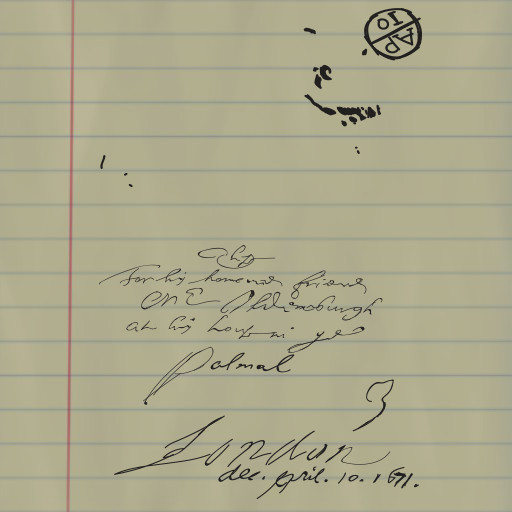 AP
10
For his honored friend
Oldenburgh
at his hous in ye
palmal
3
London
dec. april. 10. 1671.